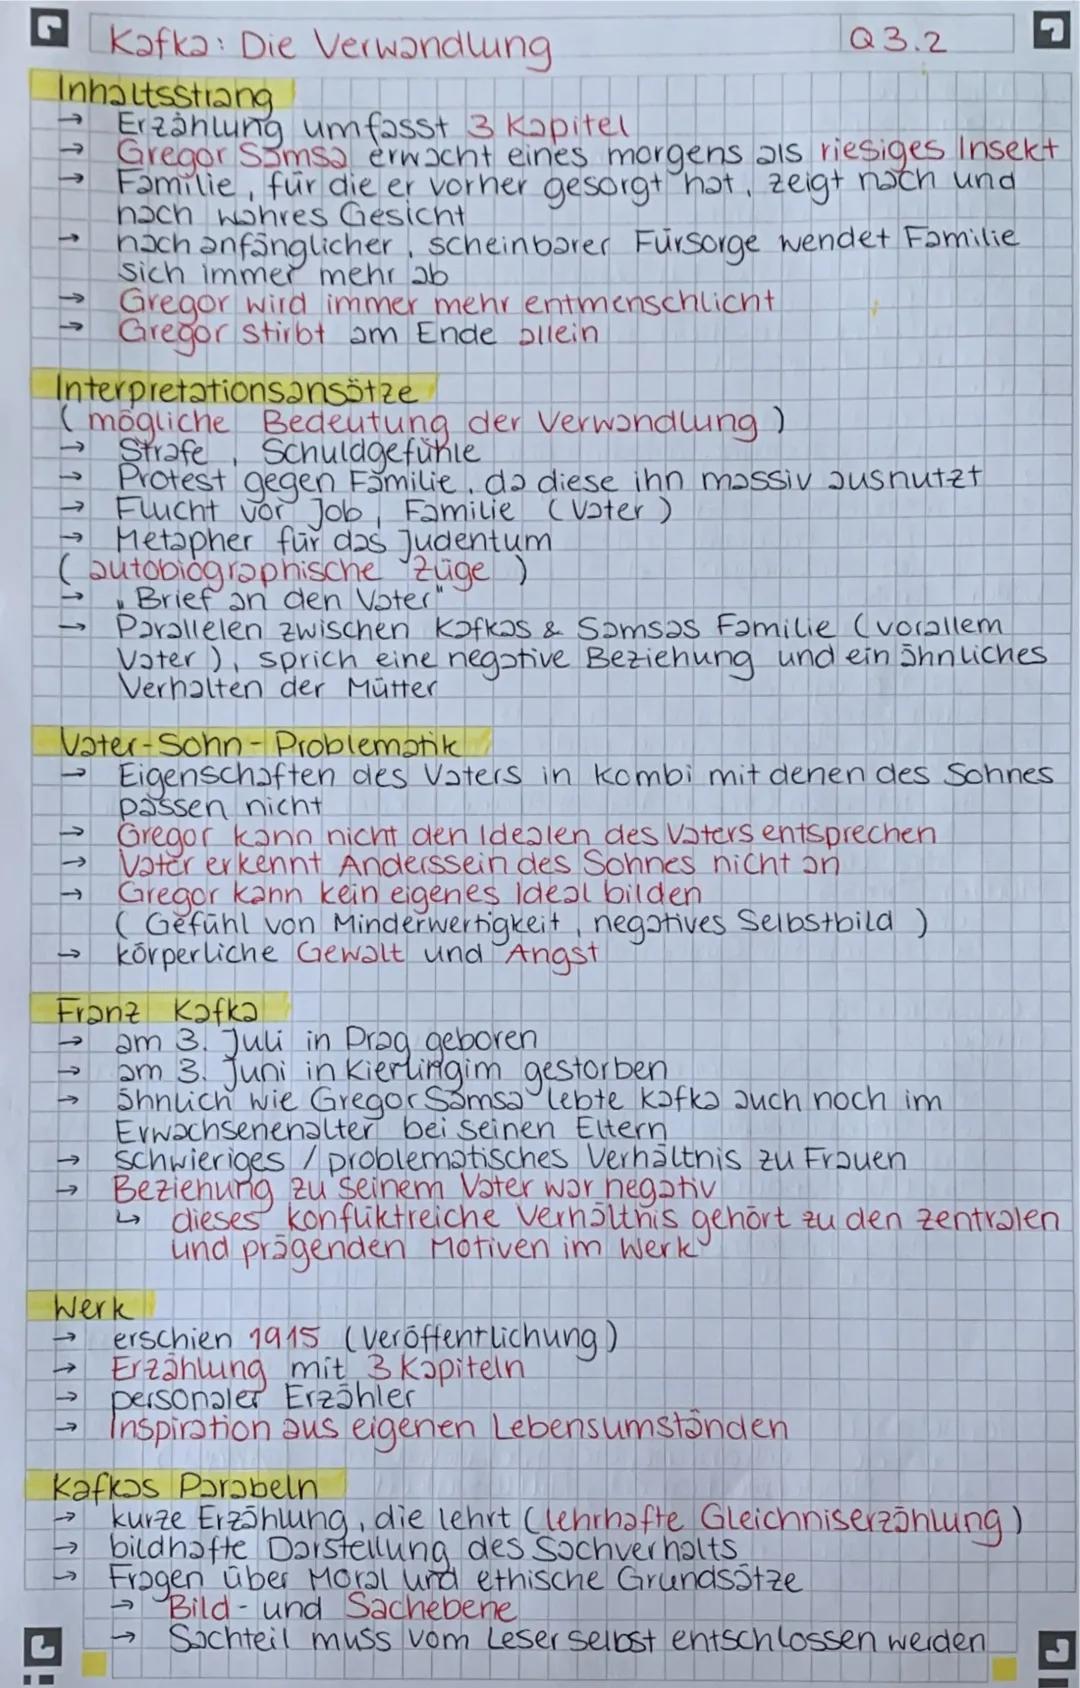 Kafka: Die Verwandlung
Q3.2
Inhaltsstrang
→ Erzählung umfasst 3 Kapitel
→ Gregor Samsa erwacht eines morgens als riesiges Insekt
→ Familie, für die er vorher gesorgt hat, zeigt nach und
nach wahres Gesicht
→ nach anfänglicher, scheinbarer Fürsorge wendet Familie
sich immer mehr ab
→ Gregor wird immer mehr entmenschlicht
→ Gregor stirbt am Ende allein
Interpretationsansätze
(mögliche Bedeutung der Verwandlung)
→ Strafe, Schuldgefühle
→ Protest gegen Familie, da diese ihn massiv ausnutzt
→ Flucht vor Job, Familie (Vater)
→ Metapher für das Judentum
(autobiographische Züge)
→ „Brief an den Vater"
→ Parallelen zwischen Kafkas & Samsas Familie (vorallem
Vater), sprich eine negative Beziehung und ein ähnliches
Verhalten der Mütter
Vater-Sohn-Problematik
→ Eigenschaften des Vaters in Kombi mit denen des Sohnes
passen nicht
→ Gregor kann nicht den Idealen des Vaters entsprechen
→ Vater erkennt Anderssein des Sohnes nicht an
→ Gregor kann kein eigenes Ideal bilden
(Gefühl von Minderwertigkeit, negatives Selbstbild)
→ körperliche Gewalt und Angst
Franz Kafka
→ am 3. Juli in Prag geboren
→ am 3. Juni in Kierlingim gestorben
→ ähnlich wie Gregor Samsa lebte Kafka auch noch im
Erwachsenenalter bei seinen Eltern
→ schwieriges / problematisches Verhältnis zu Frauen
→ Beziehung zu seinem Vater war negativ
↳ dieses konfliktreiche Verhältnis gehört zu den zentralen
und prägenden Motiven im Werk
Werk
→ erschien 1915 (Veröffentlichung)
→ Erzählung mit 3 Kapiteln
→ personaler Erzähler
→ Inspiration aus eigenen Lebensumständen
Kafkas Parabeln
→ kurze Erzählung, die lehrt (lehrhafte Gleichniserzählung)
→ bildhafte Darstellung des Sachverhalts
→ Fragen über Moral und ethische Grundsätze
→ Bild- und Sachebene
→ Sachteil muss vom Leser selbst entschlossen werden